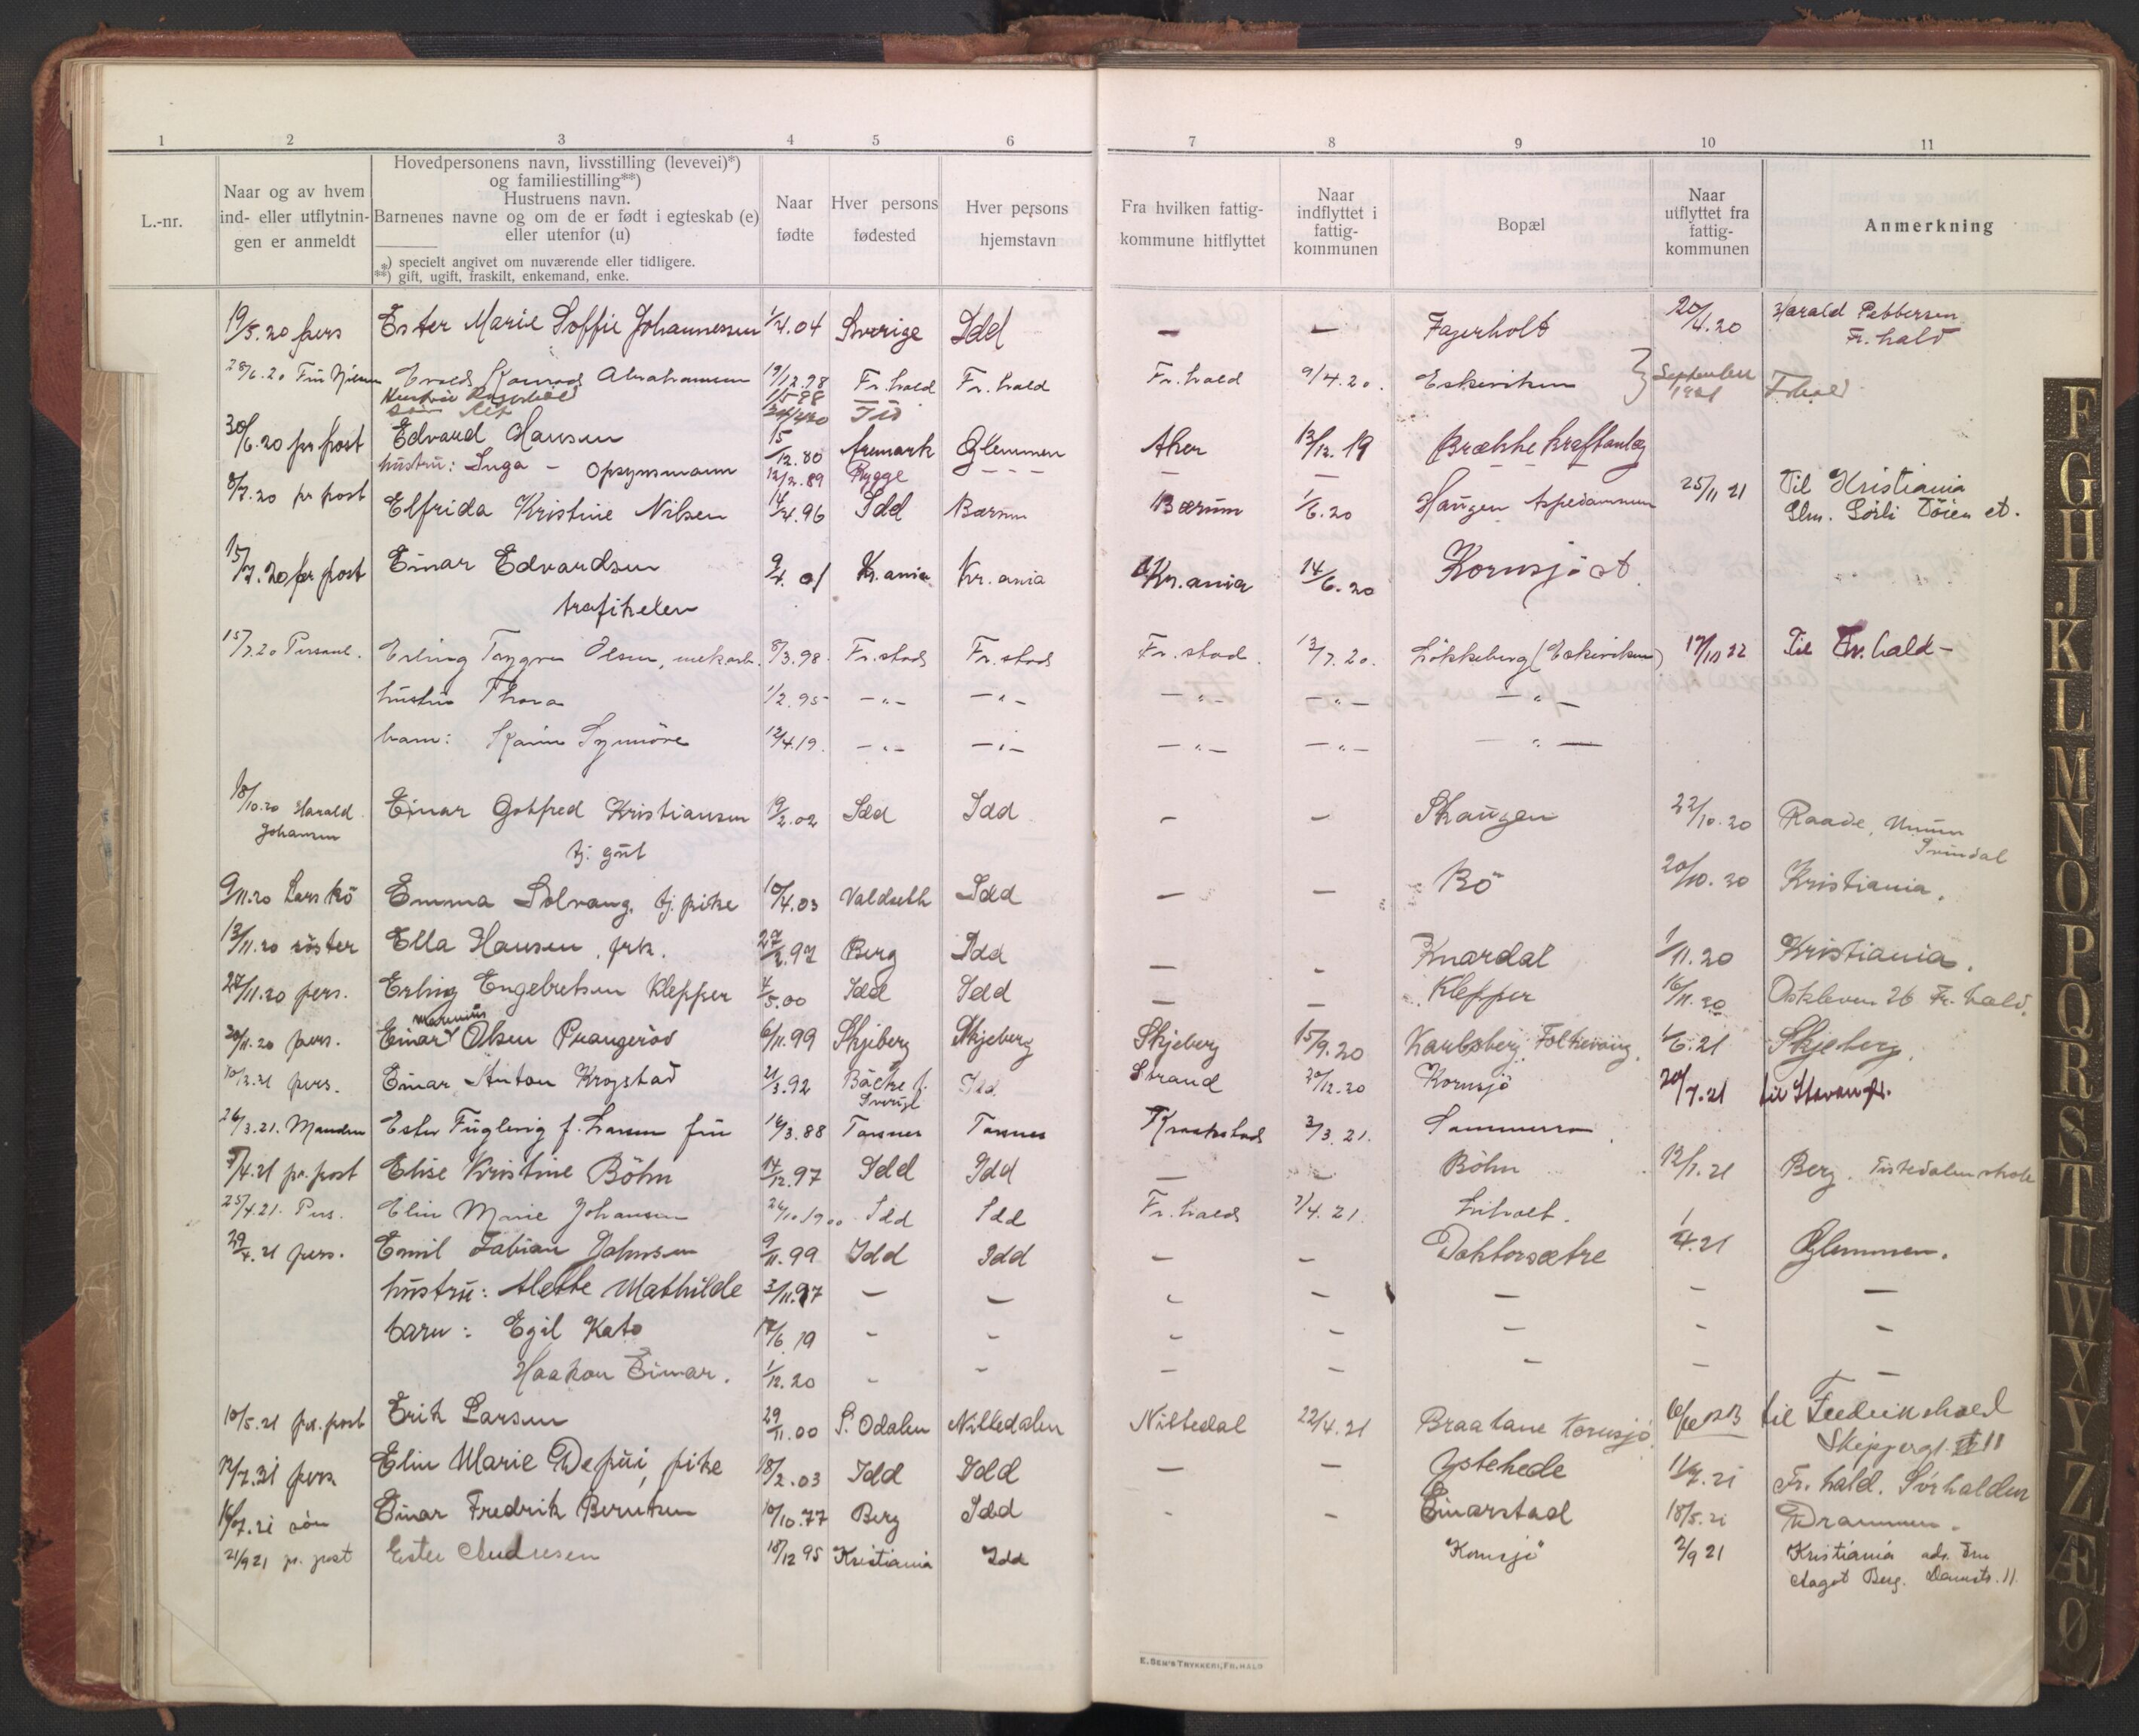 1 2 3 4 5 6 7 8 9 10 11
L.-nr.
Naar og av hvem
ind- eller utflytnin-
gen er anmeldt
Hovedpersonens navn, livsstilling (levevei)*)
og familiestilling**)
Hustruens navn.
Barnenes navne og om de er født i egteskab (e)
eller utenfor (u)
*) specielt angivet om nuværende eller tidligere.
**) gift, ugift, fraskilt, enkemand, enke.
Naar
fødte
Hver persons
fødested
Hver persons
hjemstavn
Fra hvilken fattig-
kommune hitflyttet
Naar
indflyttet i
fattig-
kommunen
Bopæl
Naar
utflyttet fra
fattig-
kommunen
Anmerkning
19/5.20 pers Ester Marie Soffie Johannessen 1/4.04 Sverige Idd — — Fagerholt 20/4.20 Harald Pettersen
Fr.hald
28/6.20 Fru Nilsen Konrad Abrahamsen 19/12.98 Fr.hald Fr.hald Fr.hald 9/4.20. Eskeviken } September Fr.hald
Hustru 1/5 98 1921
søn Idd
30/6.20 pr post Edvard Hansen 15/12.80 Aremark Glemmen Aker 13/12.19 Brække kraftanlæg
hustru: Inga - opsynsmann 12/2.89 Rygge — — — — —
8/7.20 pr post Elfrida Kristine Nilsen 14/4.96 Idd Bærum Bærum 1/6.20 Haugen Aspedammen 25/11 21 Til Kristiania
Sørli Töien st.
15/7.20 pr post Einar Edvardsen 9/4.01 Kr.ania Kr.ania Kr.ania 14/6.20 Kornsjö st
trafikelev
15/7.20 Personl. Erling Trygve Olsen, mek.arb. 8/3.98. Fr.stad Fr.stad Fr.stad. 13/7.20. Lökkeberg (Eskeviken) 17/10 22 Til Fr.hald -
hustru Thora 1/2.95 -"- -"- -"- -"- -"-
barn: Karin Synnöve 12/4.19. -"- -"- -"- -"- -"-
18/10.20 Harald Einar Gotfred Kristiansen 19/2.02 Idd Idd - - Skaugen 22/10.20 Raade,
Johansen tj. gut Svindal
9/11.20 Lars Bö Emma Solvang, tj. pike 10/4.03 Valdseth Idd — — Bö 20/10.20 Kristiania.
13/11.20 söster Ella Hansen, frk. 27/2.97 Berg Idd — - Knardal 1/11.20 Kristiania.
27/11.20 pers. Erling Engebretsen Klepper 4/5.00 Idd Idd — — Klepper 16/11.20 Oskleven 26 Fr.hald.
Marinius
30/11.20 pers. Einar Olsen Prangeröd 6/11.99 Skjeberg Skjeberg Skjeberg 15/9.20 Karlsberg, Folkevang. 1/6.21 Skjeberg.
10/2.21 pers. Einar Anton Krogstad 21/3.92 Bäcke f. Idd Strand 20/12.20 Kornsjö 20/7.21 til Stavang.
Sverige
26/3.21. Manden Ester Fugleng f. Larsen fru 14/3.88 Torsnes Torsnes Kraakstad 3/3.21.
5/4.21 pr.post Elise Kristine Böhn 14/12.97 Idd Idd — — Böhn 12/1.21 Berg. Tistedalen skole
25/4.21. Pers. Elin Marie Johansen 26/10.1900 Idd Idd Fr.hald 2/4.21. Liholt.
29/4.21 pers. Emil Fabian Johnsen 9/11.99 Idd Idd — - Doktorsætre 1/4.21 Glemmen.
hustru: Alette Mathilde 3/11.97 — — - - — - —
barn: Egil Kato 17/6.19 - - - - - - -
Haakon Einar. 1/12.20 - - - - - - -
10/5.21 pr.post Erik Larsen 29/11.00 S. Odalen Nittedalen Nittedal 22/4.21 Braatane Kornsjö til Fredrikshald
Skippergt. II
12/7.21 pers Elin Marie Depui, pike 18/2.03 Idd Idd — — Ystehede 11/7.21 Fr.hald. Sörhalden
16/7.21 sön Einar Fredrik Berntsen 10/10.77 Berg Idd - - Einarstad 18/5.21 Drammen.
21/9 21 pr. post Ester Andresen 18/12 95 Kristiania Idd Kornsjö 2/9 21 Kristiania adr. Fru
Aagot Berg. 11.
E. SEM'S TRYKKERI, FR.HALD
F
G
H
J
K
L
M
N
O
P
Q
R
S
T
U
W
X
Y
Z
Æ
Ø